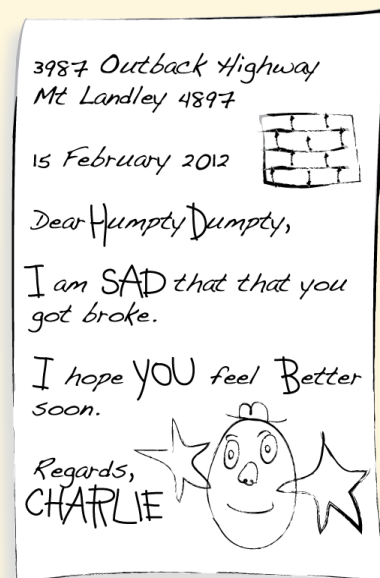 3987 Outback Highway
Mt Landley 4897
15 February 2012
Dear Humpty Dumpty,
I am SAD that that you
got broke.
I hope YOU feel Better
soon.
Regards,
CHARLIE